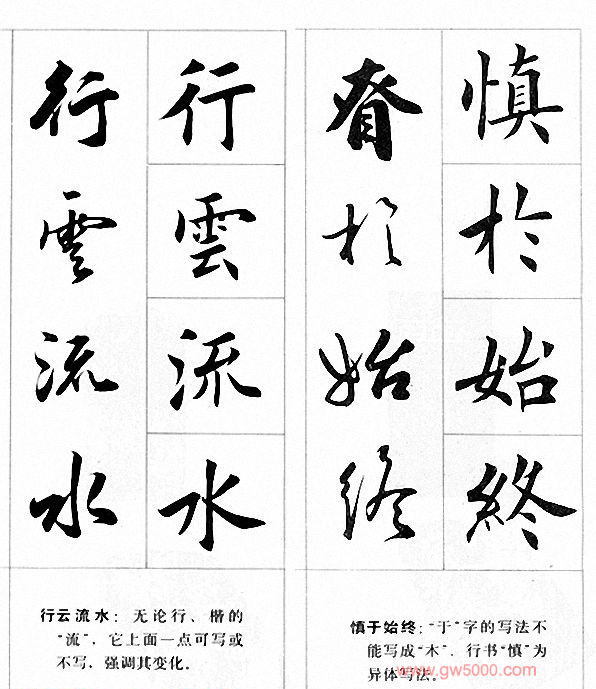 慎於始終
眘於始終
慎于始终：“于”字的写法不
能写成“木”．行书“慎”为
异体写法。
行雲流水
行雲流水
行云流水：无论行、楷的
“流”，它上面一点可写或
不写，强调其变化。
www.gw5000.com